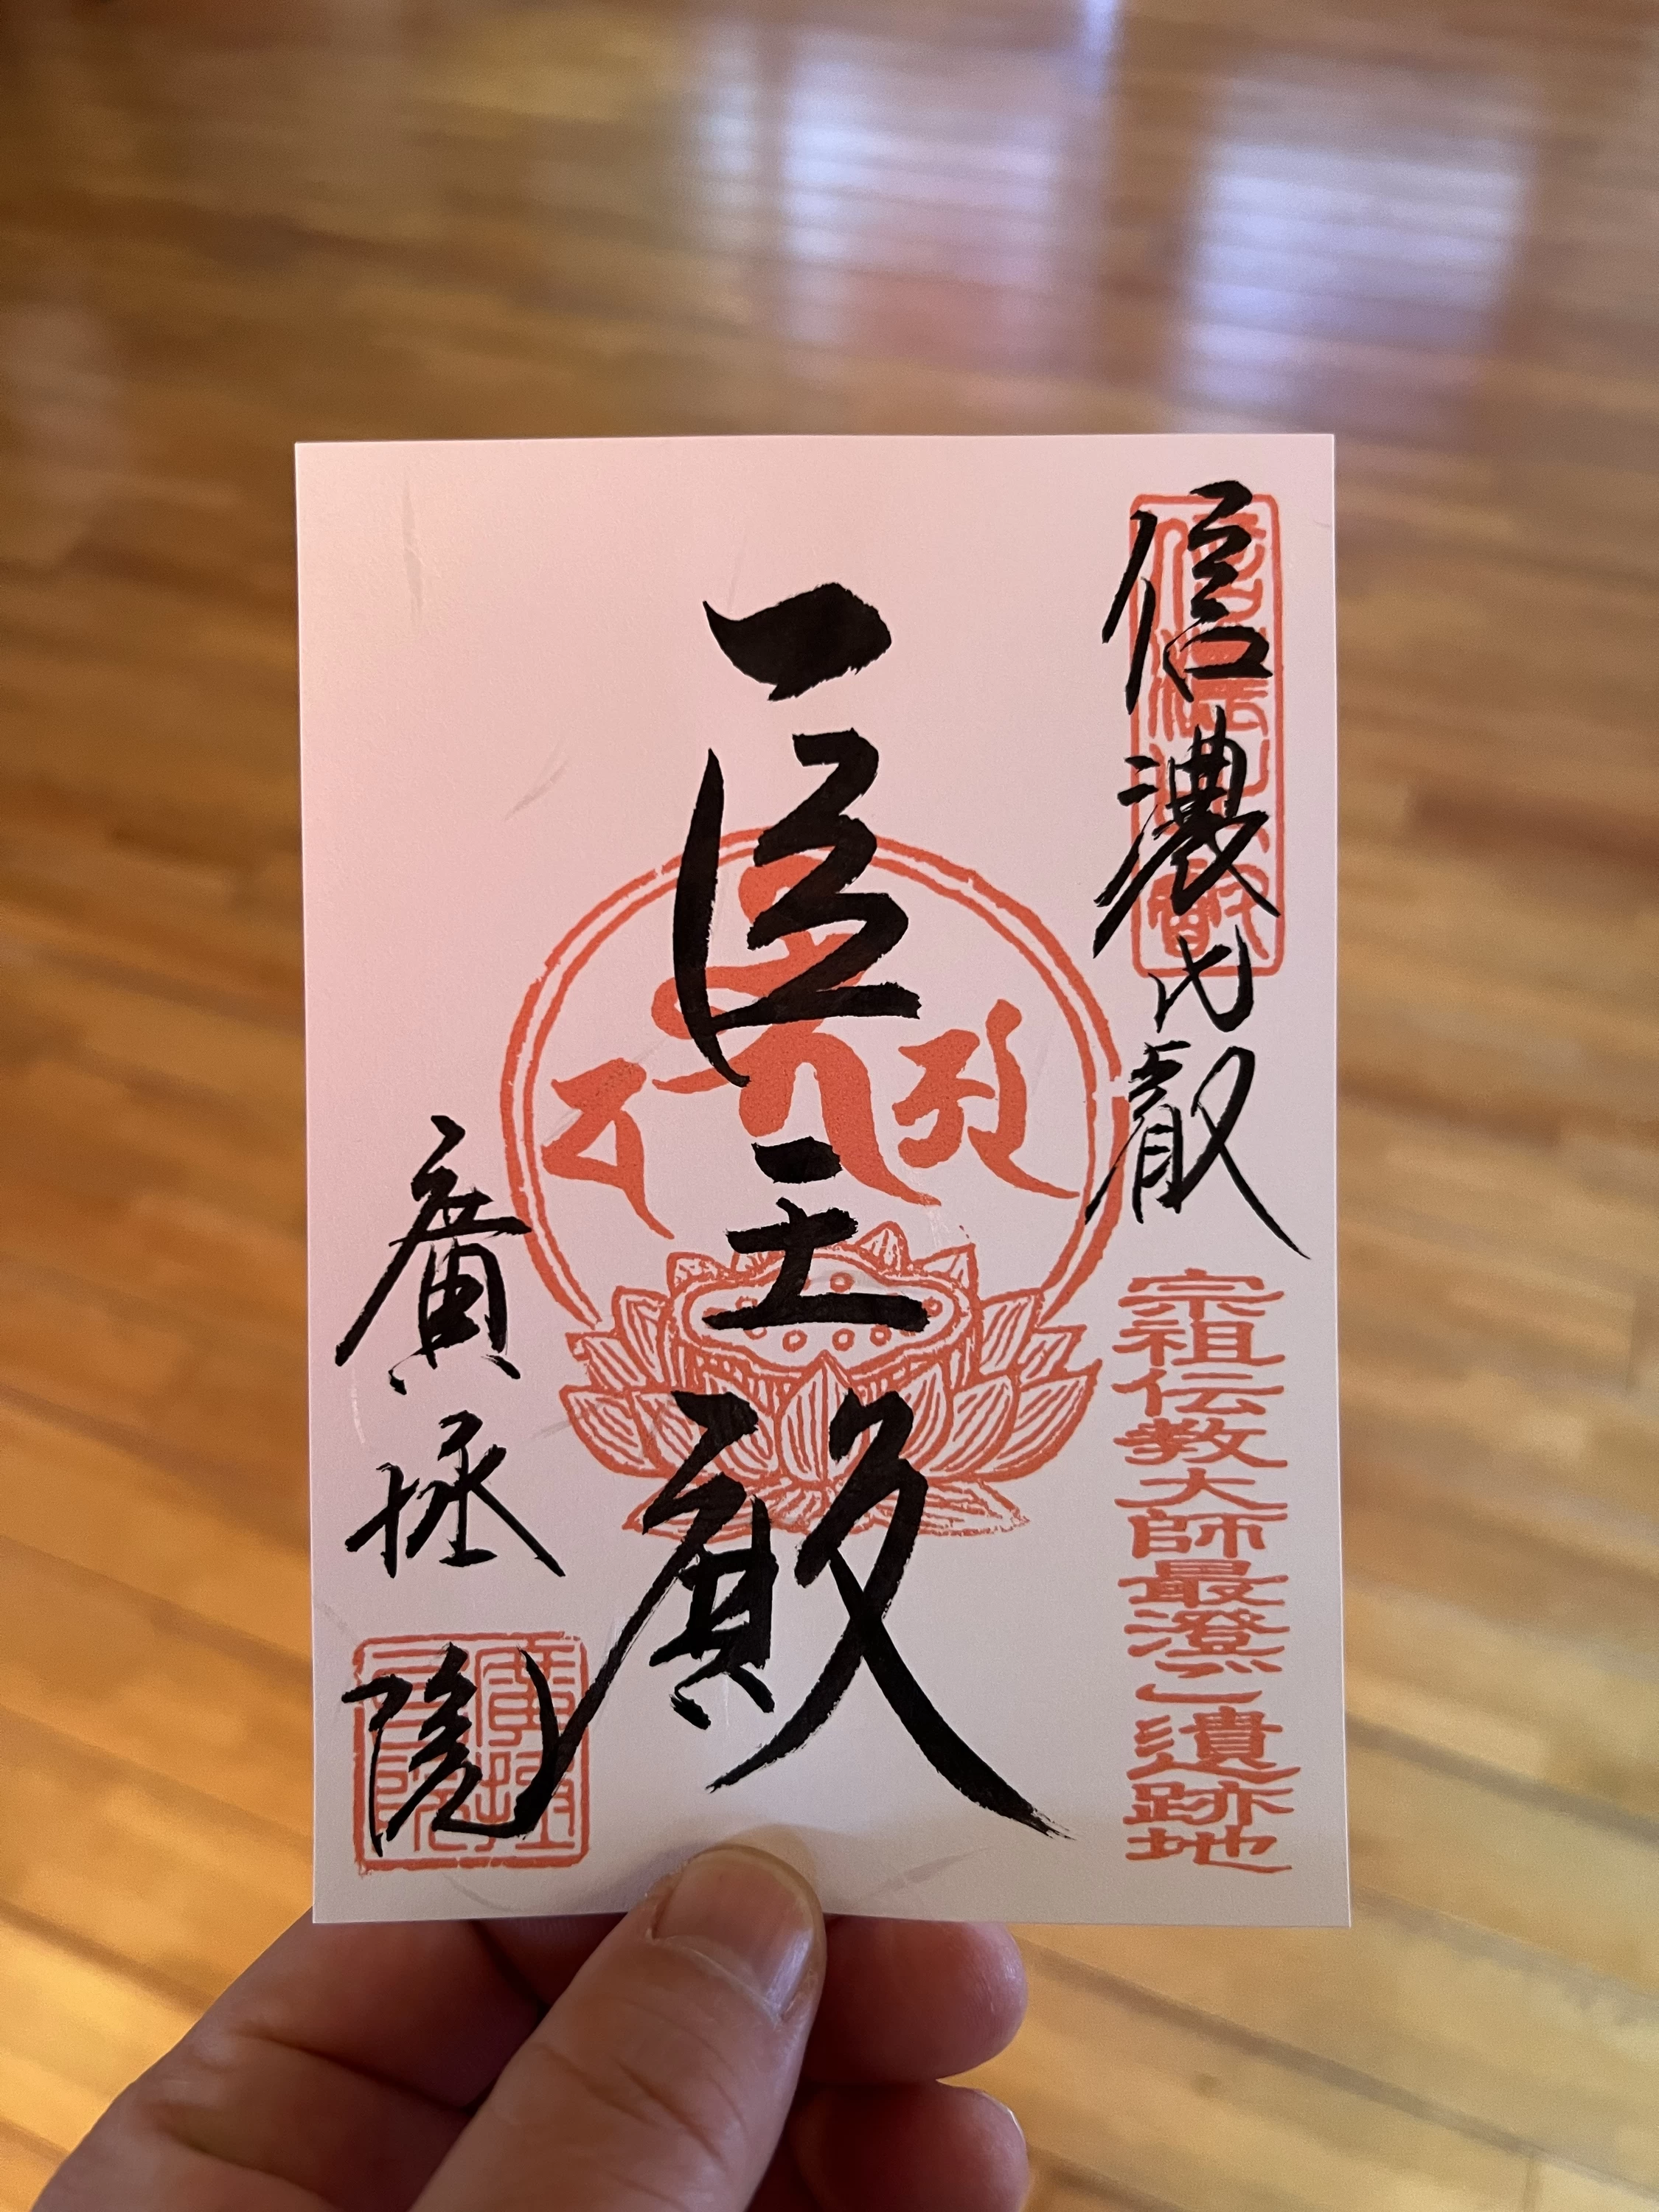 信濃比叡
宗祖伝教大師最澄ご遺跡地
医王殿
廣拯院